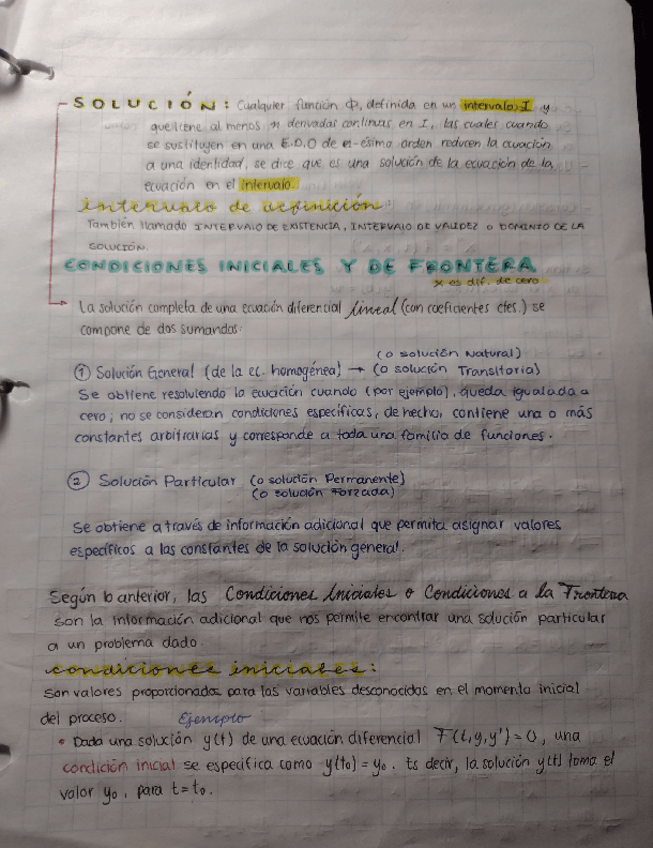 SOLUCIÓN: Cualquier función Φ, definida en un intervalo I y
que tiene al menos n derivadas continuas en I, las cuales cuando
se sustituyen en una E.D.O de n-ésimo orden reducen la ecuación
a una identidad, se dice que es una solución de la ecuación de la
ecuación en el intervalo.
intervalo de definición:
También llamado INTERVALO DE EXISTENCIA, INTERVALO DE VALIDEZ O DOMINIO DE LA
SOLUCIÓN.
CONDICIONES INICIALES Y DE FRONTERA
x es dif. de cero
La solución completa de una ecuación diferencial lineal (con coeficientes ctes.) se
compone de dos sumandos:
(o solución Natural)
① Solución General (de la ec. homogénea) → (o solución Transitoria)
Se obtiene resolviendo la ecuación cuando (por ejemplo), queda igualada a
cero; no se consideran condiciones específicas, de hecho, contiene una o más
constantes arbitrarias y corresponde a toda una familia de funciones.
② Solución Particular (o solución Permanente)
(o solución Forzada)
Se obtiene a través de información adicional que permita asignar valores
específicos a las constantes de la solución general.
Según lo anterior, las Condiciones Iniciales o Condiciones a la Frontera
son la información adicional que nos permite encontrar una solución particular
a un problema dado.
condiciones iniciales:
Son valores proporcionados para las variables desconocidas en el momento inicial
del proceso. Ejemplo
• Dada una solución y(t) de una ecuación diferencial F(t,y,y')=0, una
condición inicial se especifica como y(t₀)=y₀. Es decir, la solución y(t) toma el
valor y₀, para t=t₀.